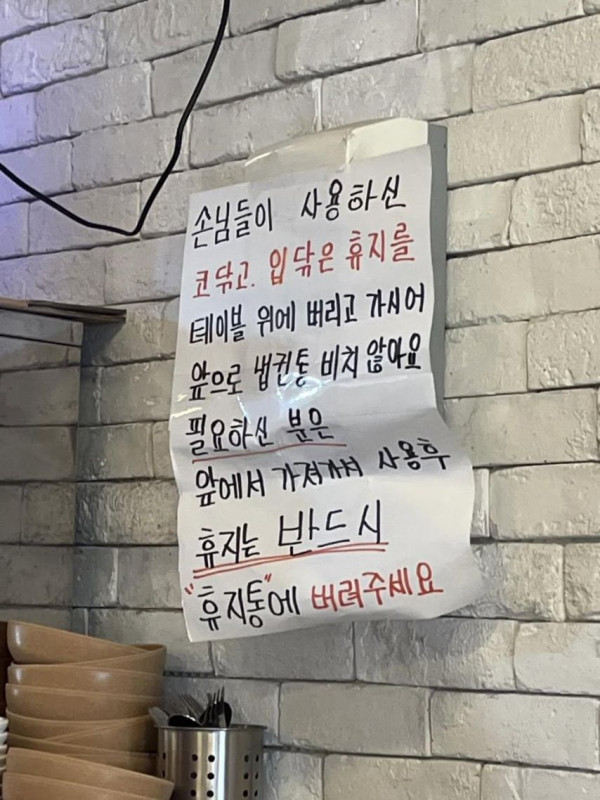 손님들이 사용하신
코닦고. 입닦은 휴지를
테이블 위에 버리고 가시어
앞으로 냅킨통 비치 않아요
필요하신 분은
앞에서 가져가셔 사용후
휴지는 반드시
"휴지통"에 버려주세요